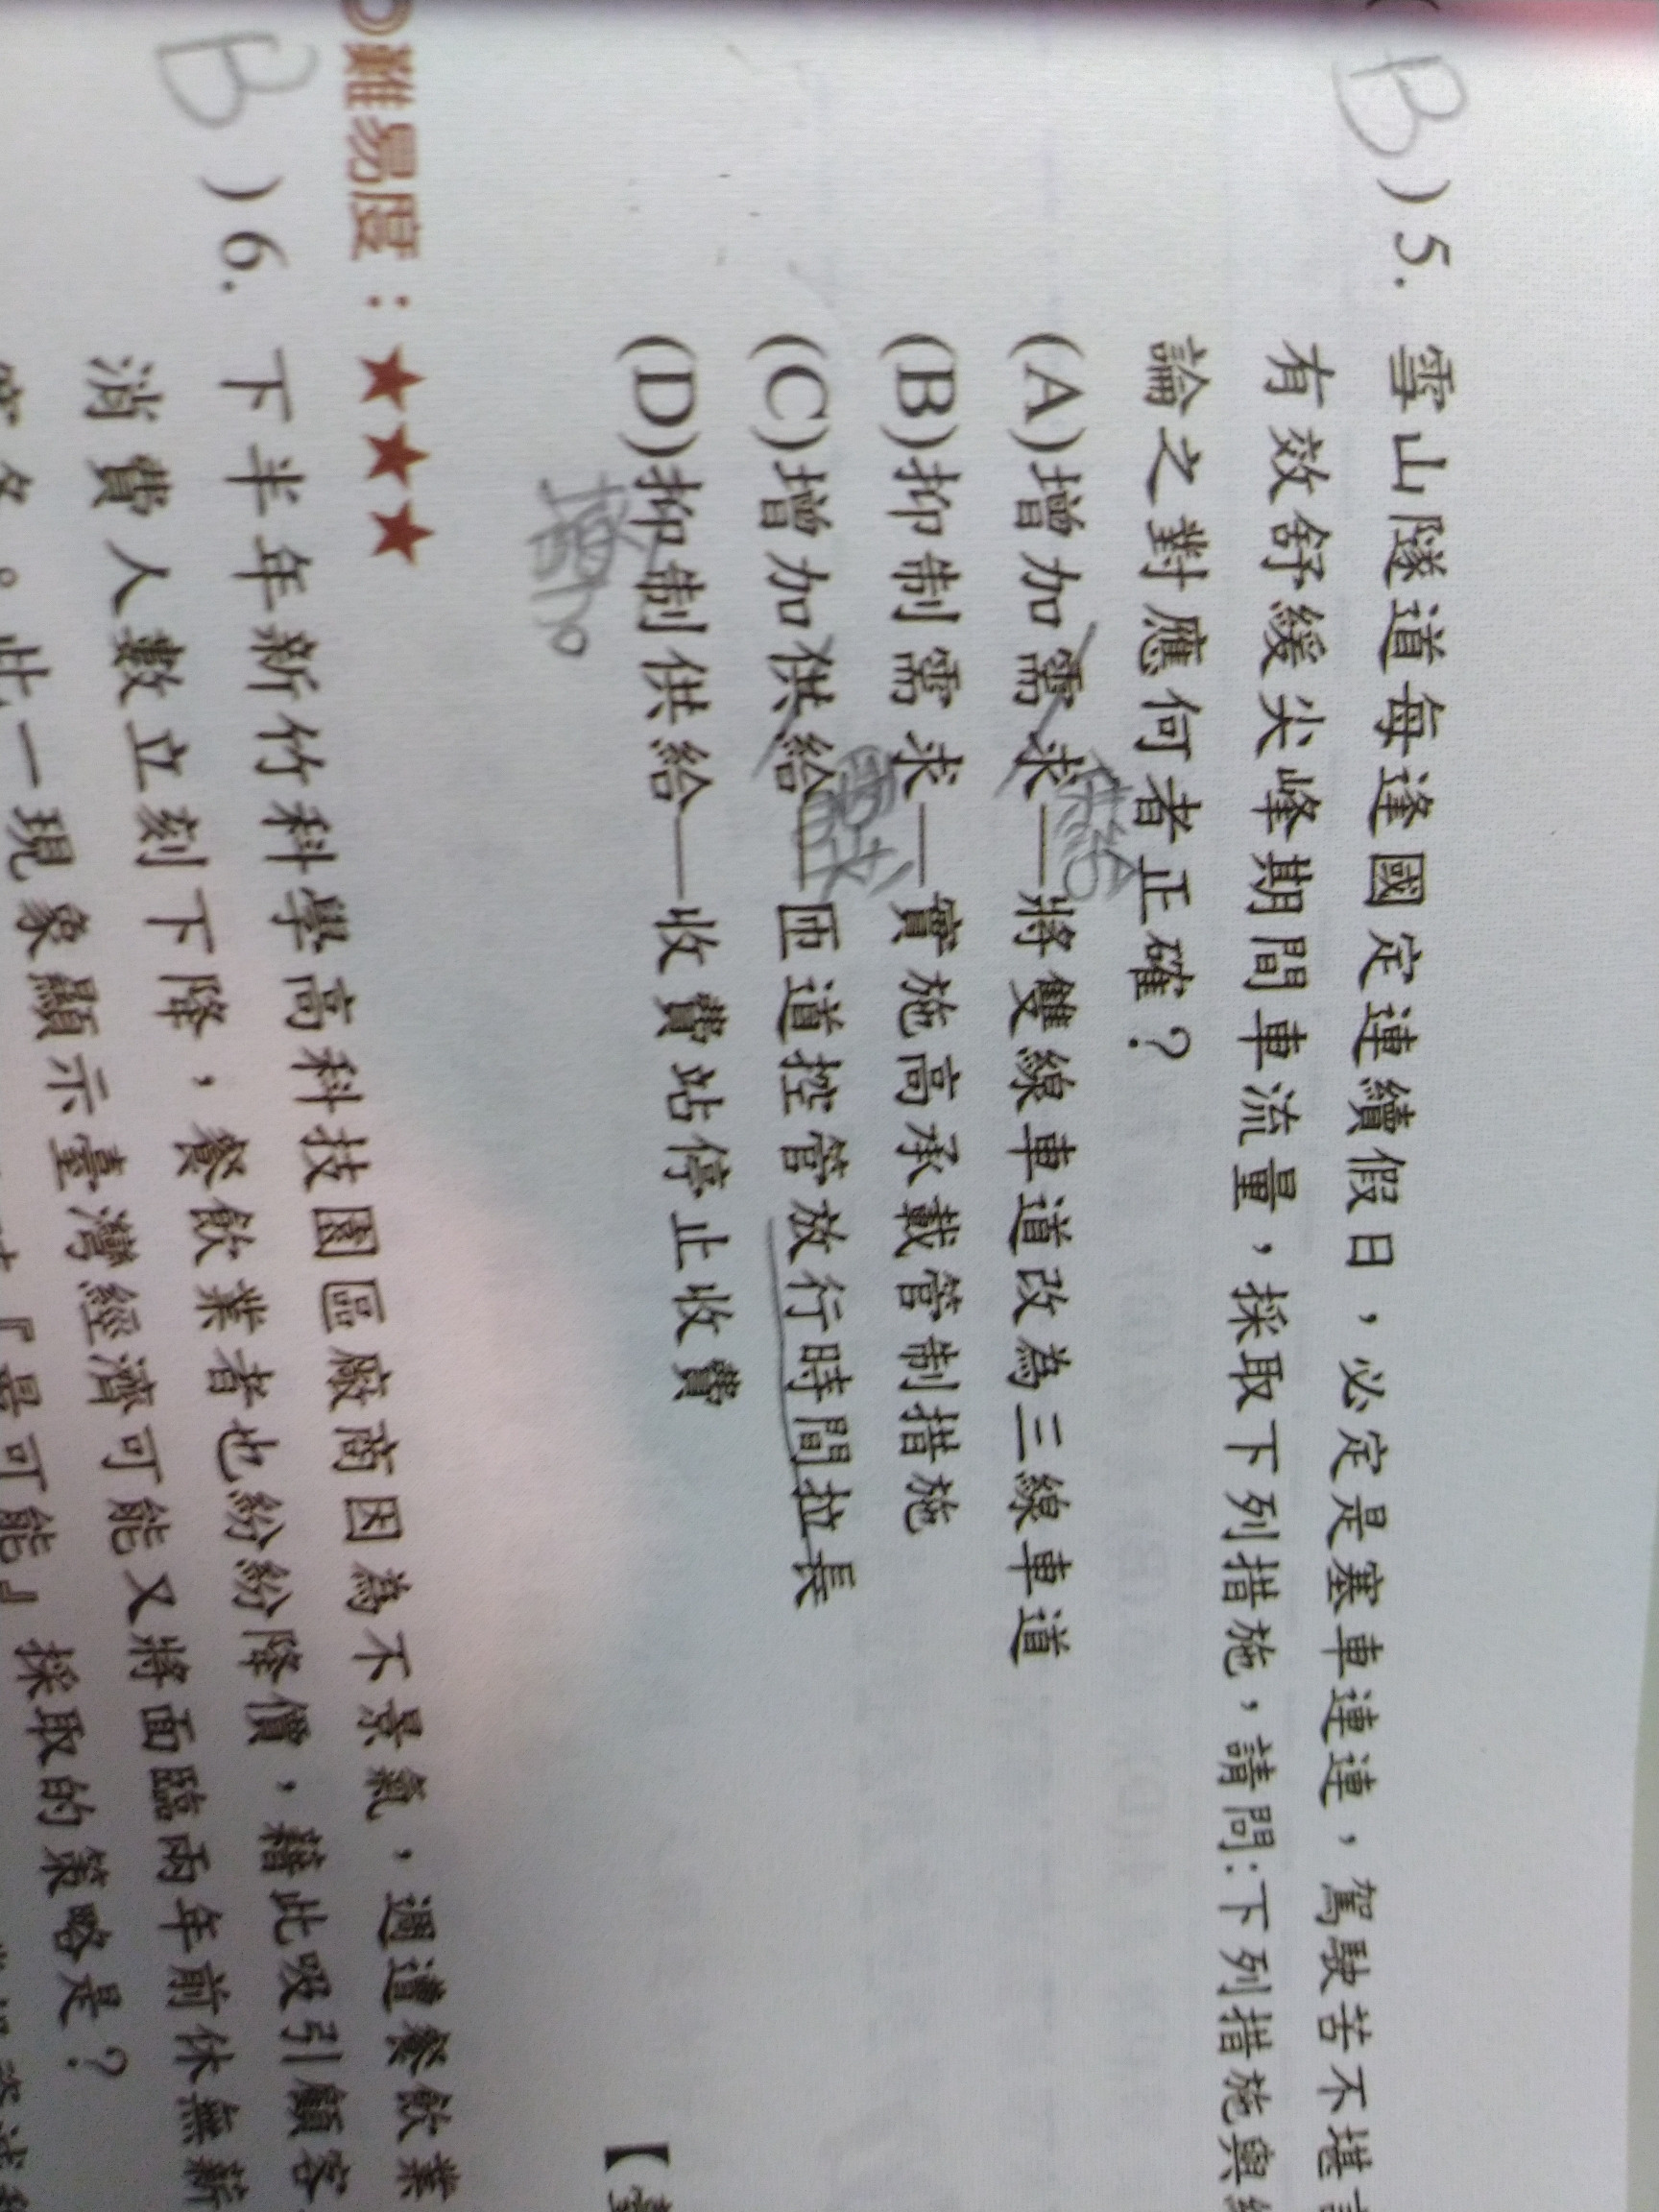 B ) 5. 雪山隧道每逢國定連續假日，必定是塞車連連，駕駛苦不堪
有效舒緩尖峰期間車流量，採取下列措施，請問：下列措施與
論之對應何者正確？
供給
(A)增加需求—將雙線車道改為三線車道
(B)抑制需求—實施高承載管制措施
(C)增加供給—匝道控管放行時間拉長
(D)抑制供給—收費站停止收費
增加
難易度：★★★
B ) 6. 下半年新竹科學高科技園區廠商因為不景氣，週遭餐飲業
消費人數立刻下降，餐飲業者也紛紛降價，藉此吸引顧客
此一現象顯示臺灣經濟可能又將面臨兩年前休無薪
『最可能』採取的策略是？